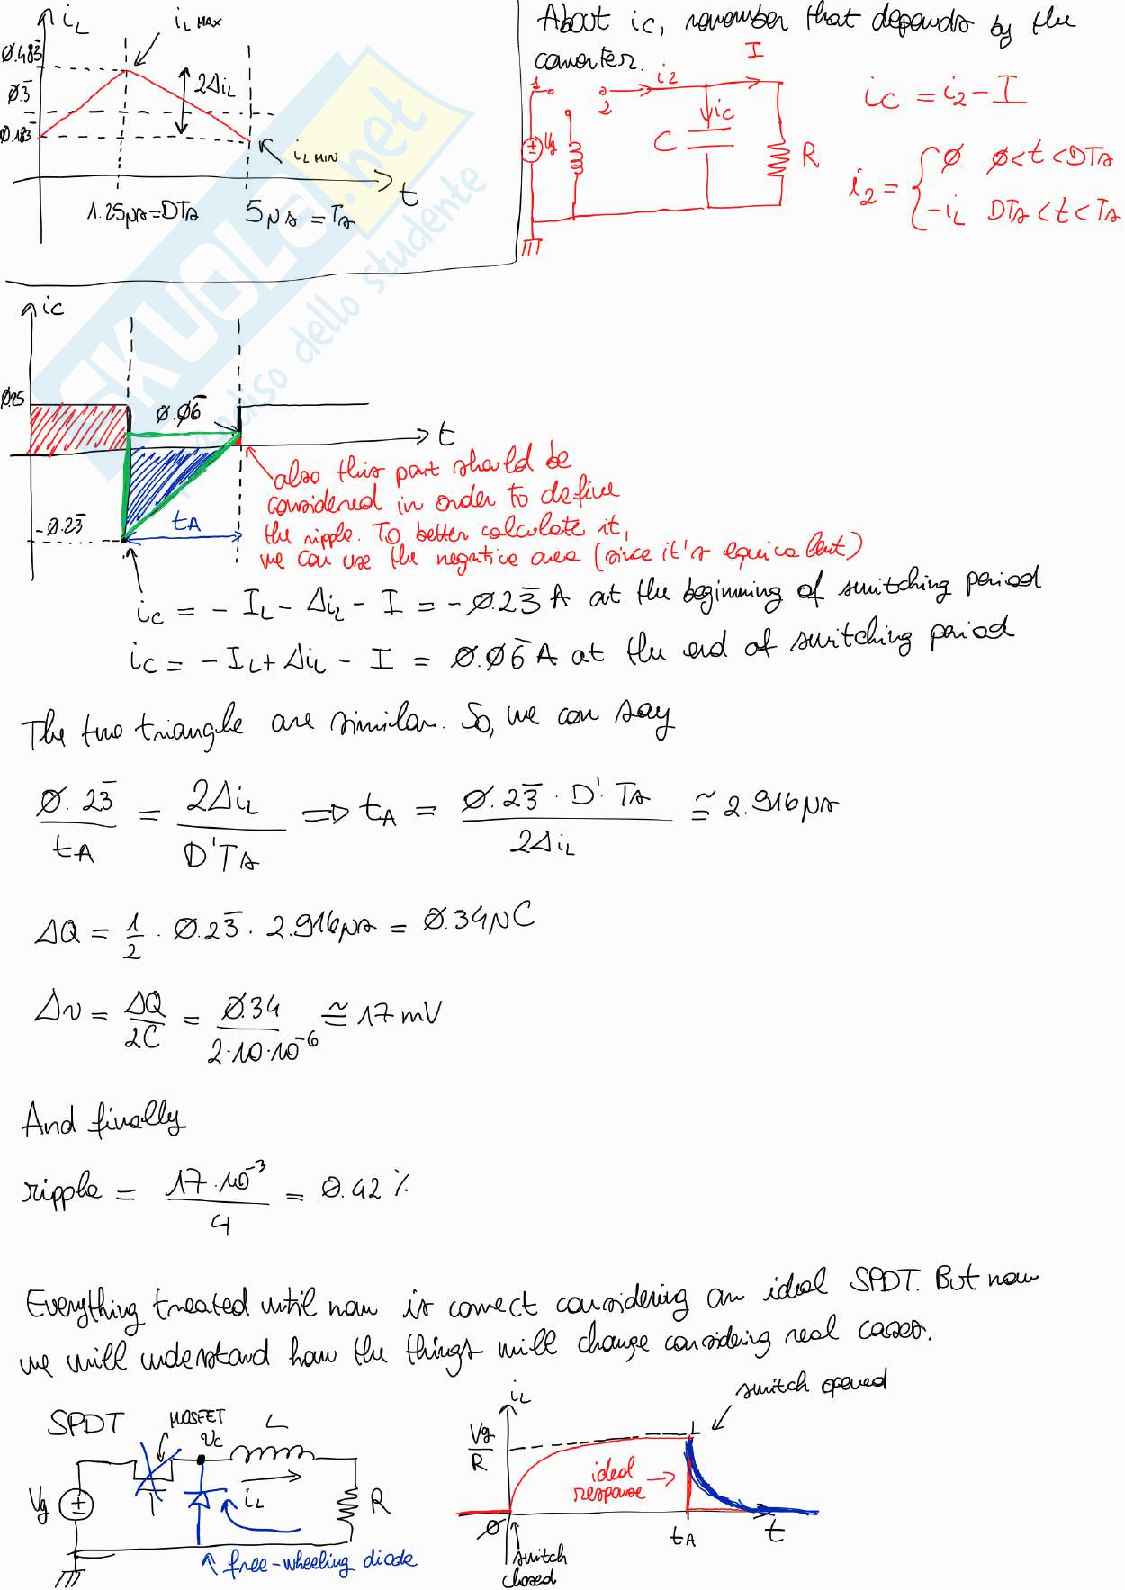 iL
iL MAX
0.483
0.3
0.183
2ΔiL
iL MIN
t
1.25μs=DTs
5μs = Ts
About ic, remember that depends by the
converter.
I
1
2
i2
ic
Vg
C
R
ic = i2 - I
i2 = { 0 0<t<DTs
-iL DTs<t<Ts
SKUOLA.net
paradiso dello studente
ic
0.25
0.06
t
-0.23
tA
also this part should be
considered in order to define
the ripple. To better calculate it,
we can use the negative area (since it's equivalent)
ic = - IL - ΔiL - I = -0.23 A at the beginning of switching period
ic = - IL + ΔiL - I = 0.06 A at the end of switching period
The two triangle are similar. So, we can say
0.23/tA = 2ΔiL/D'Ts ⇒ tA = 0.23 · D' · Ts/2ΔiL ≅ 2.916μs
ΔQ = 1/2 · 0.23 · 2.916μs = 0.34μC
Δv = ΔQ/2C = 0.34/2·10·10⁻⁶ ≅ 17mV
And finally
ripple = 17·10⁻³/4 = 0.42%
Everything treated until now is correct considering an ideal SPDT. But now
we will understand how the things will change considering real cases.
SPDT
MOSFET
L
vc
Vg
iL
R
free-wheeling diode
iL
switch opened
Vg/R
ideal
response
0
tA
t
switch
closed